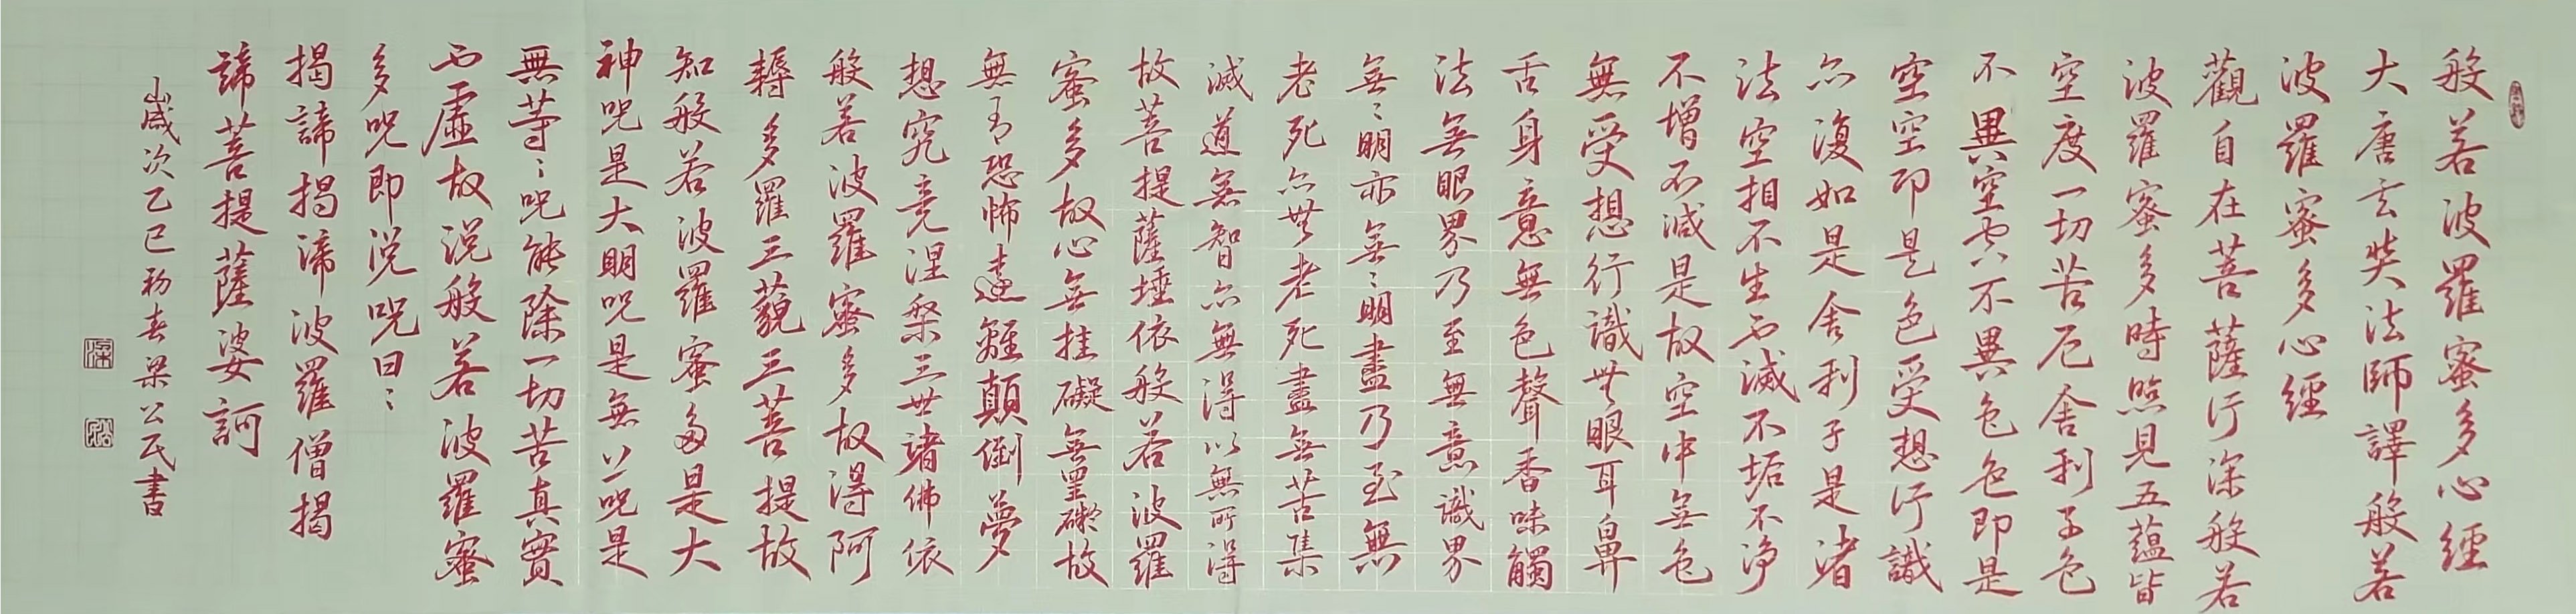 般若波羅蜜多心經
大唐玄奘法師譯般若
波羅蜜多心經
觀自在菩薩行深般若
波羅蜜多時照見五蘊皆
空度一切苦厄舍利子色
不異空空不異色色即是
空空即是色受想行識
亦復如是舍利子是諸
法空相不生不滅不垢不净
不增不減是故空中無色
無受想行識無眼耳鼻
舌身意無色聲香味觸
法無眼界乃至無意識界
無無明亦無無明盡乃至無
老死亦無老死盡無苦集
滅道無智亦無得以無所得
故菩提薩埵依般若波羅
蜜多故心無挂礙無罣礙故
無有恐怖遠離顛倒夢
想究竟涅槃三世諸佛依
般若波羅蜜多故得阿
耨多羅三藐三菩提故
知般若波羅蜜多是大
神咒是大明咒是無上咒是
無等等咒能除一切苦真實
不虛故説般若波羅蜜
多咒即説咒曰
揭諦揭諦波羅僧揭
諦菩提薩婆訶
歲次乙巳初春梁公民書